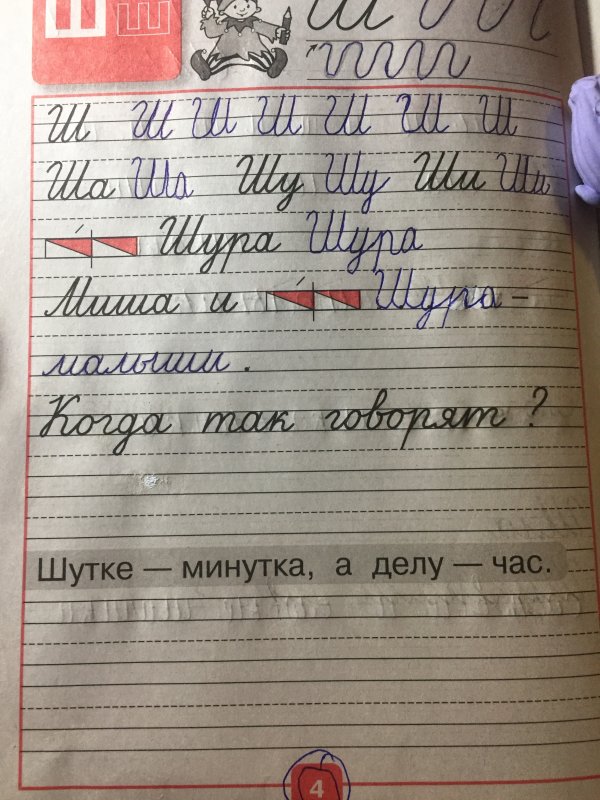 Ш Ш
Ш
Ш Ш Ш Ш Ш Ш Ш
Ша Ша Шу Шу Ши Ши
Шура Шура
Миша и Шура –
малыши.
Когда так говорят?
Шутке — минутка, а делу — час.
4